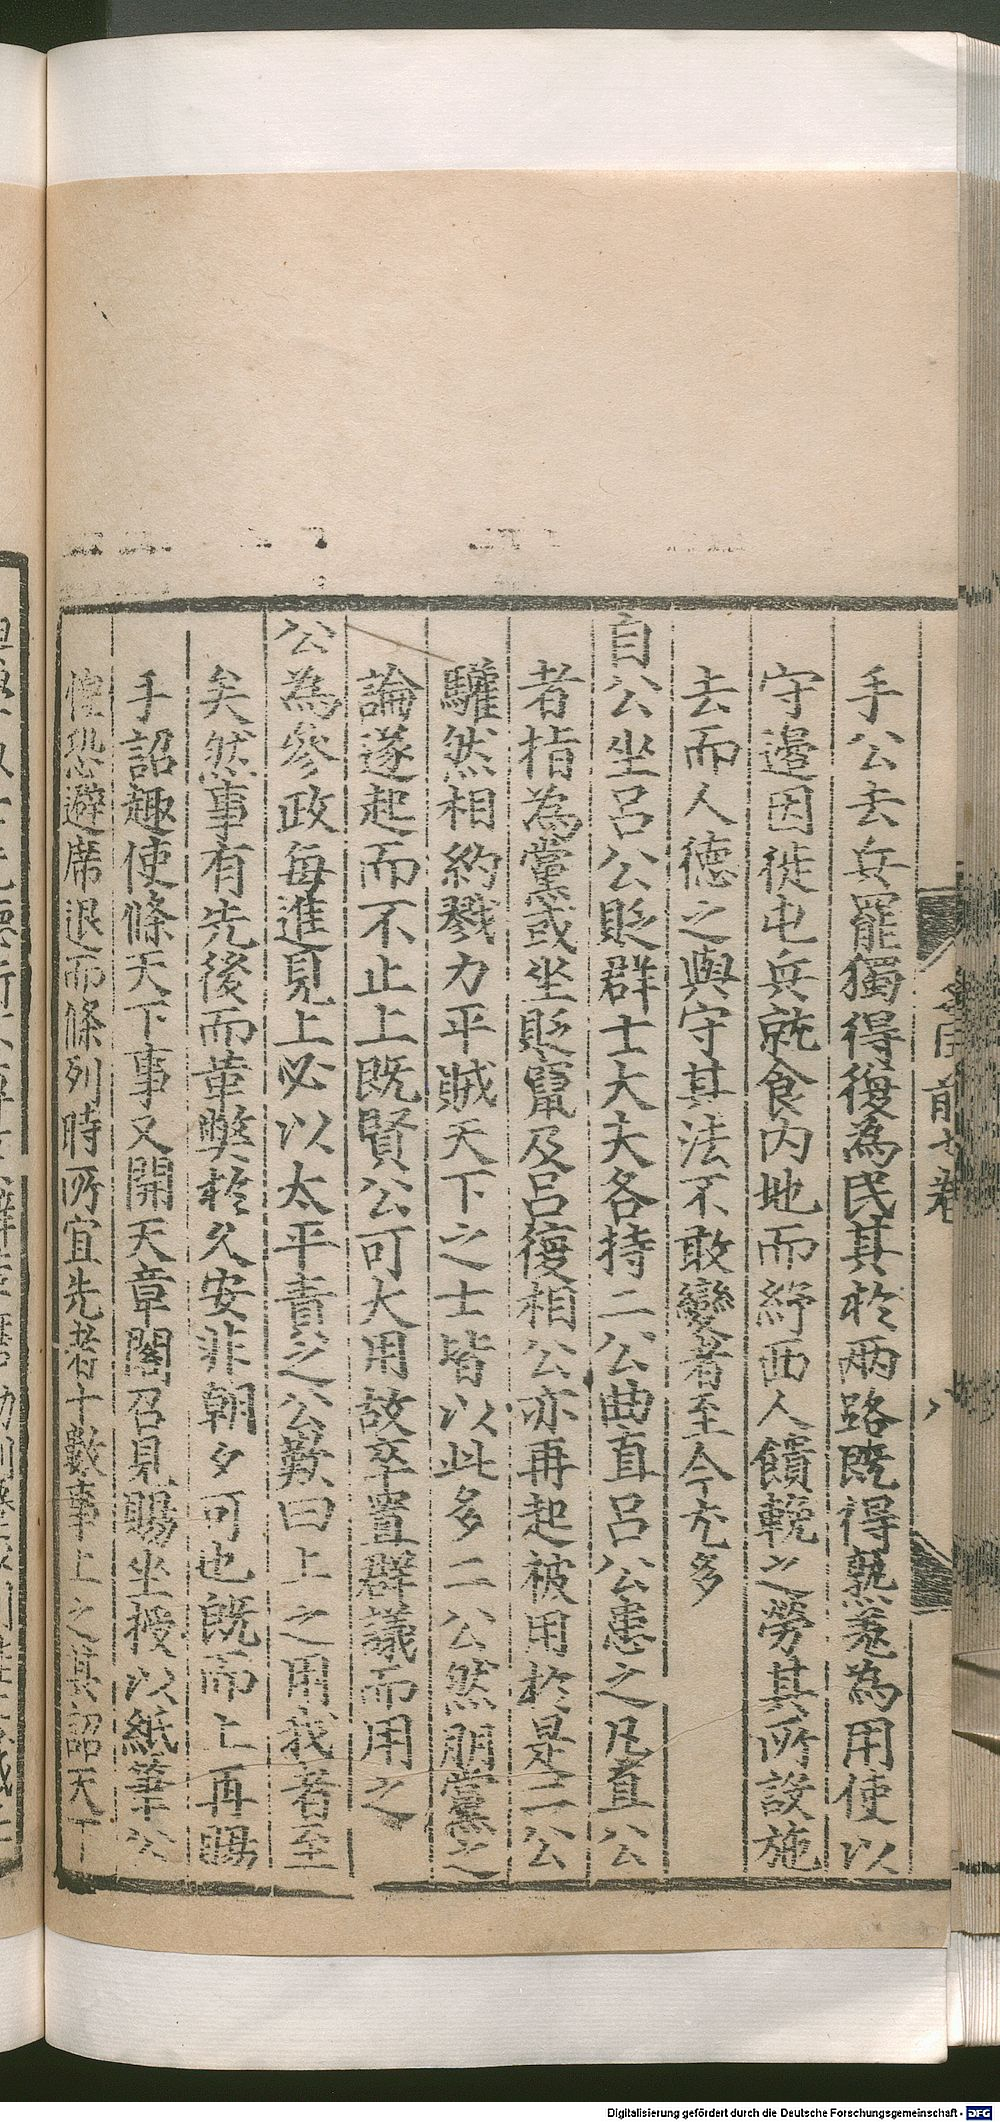 手公去兵罷獨得復為民其於兩路既得熟羌為用使以
守邊因徙屯兵就食内地而紓西人饋輓之勞其所設施
去而人德之與守其法不敢變者至今尤多
自公坐呂公貶群士大夫各持二公曲直呂公患之凡直公
者指為黨或坐貶竄及呂復相公亦再起被用於是二公
驩然相約戮力平賊天下之士皆以此多二公然朋黨之
論遂起而不止上既賢公可大用故卒置群議而用之
公為參政每進見上必以太平責之公歎曰上之用我者至
矣然事有先後而革弊於久安非朝夕可也既而上再賜
手詔趣使條天下事又開天章閣召見賜坐授以紙筆公
惶恐避席退而條列時所宜先者十數事上之其詔天下
前七卷
八
Digitalisierung gefördert durch die Deutsche Forschungsgemeinschaft - DFG